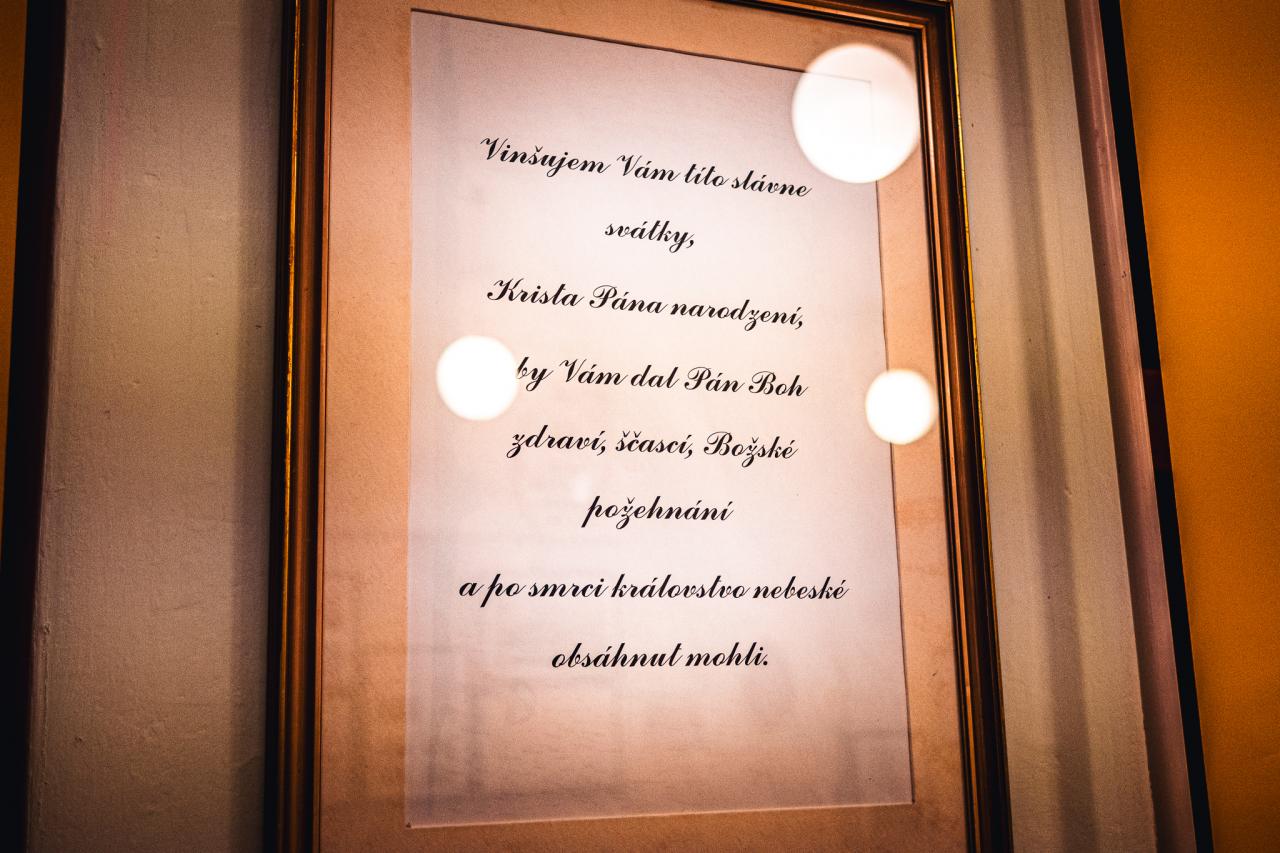 Vinšujem Vám títo slávne
svátky,
Krista Pána narodzení,
by Vám dal Pán Boh
zdraví, ščascí, Božské
požehnání
a po smrci královstvo nebeské
obsáhnut mohli.